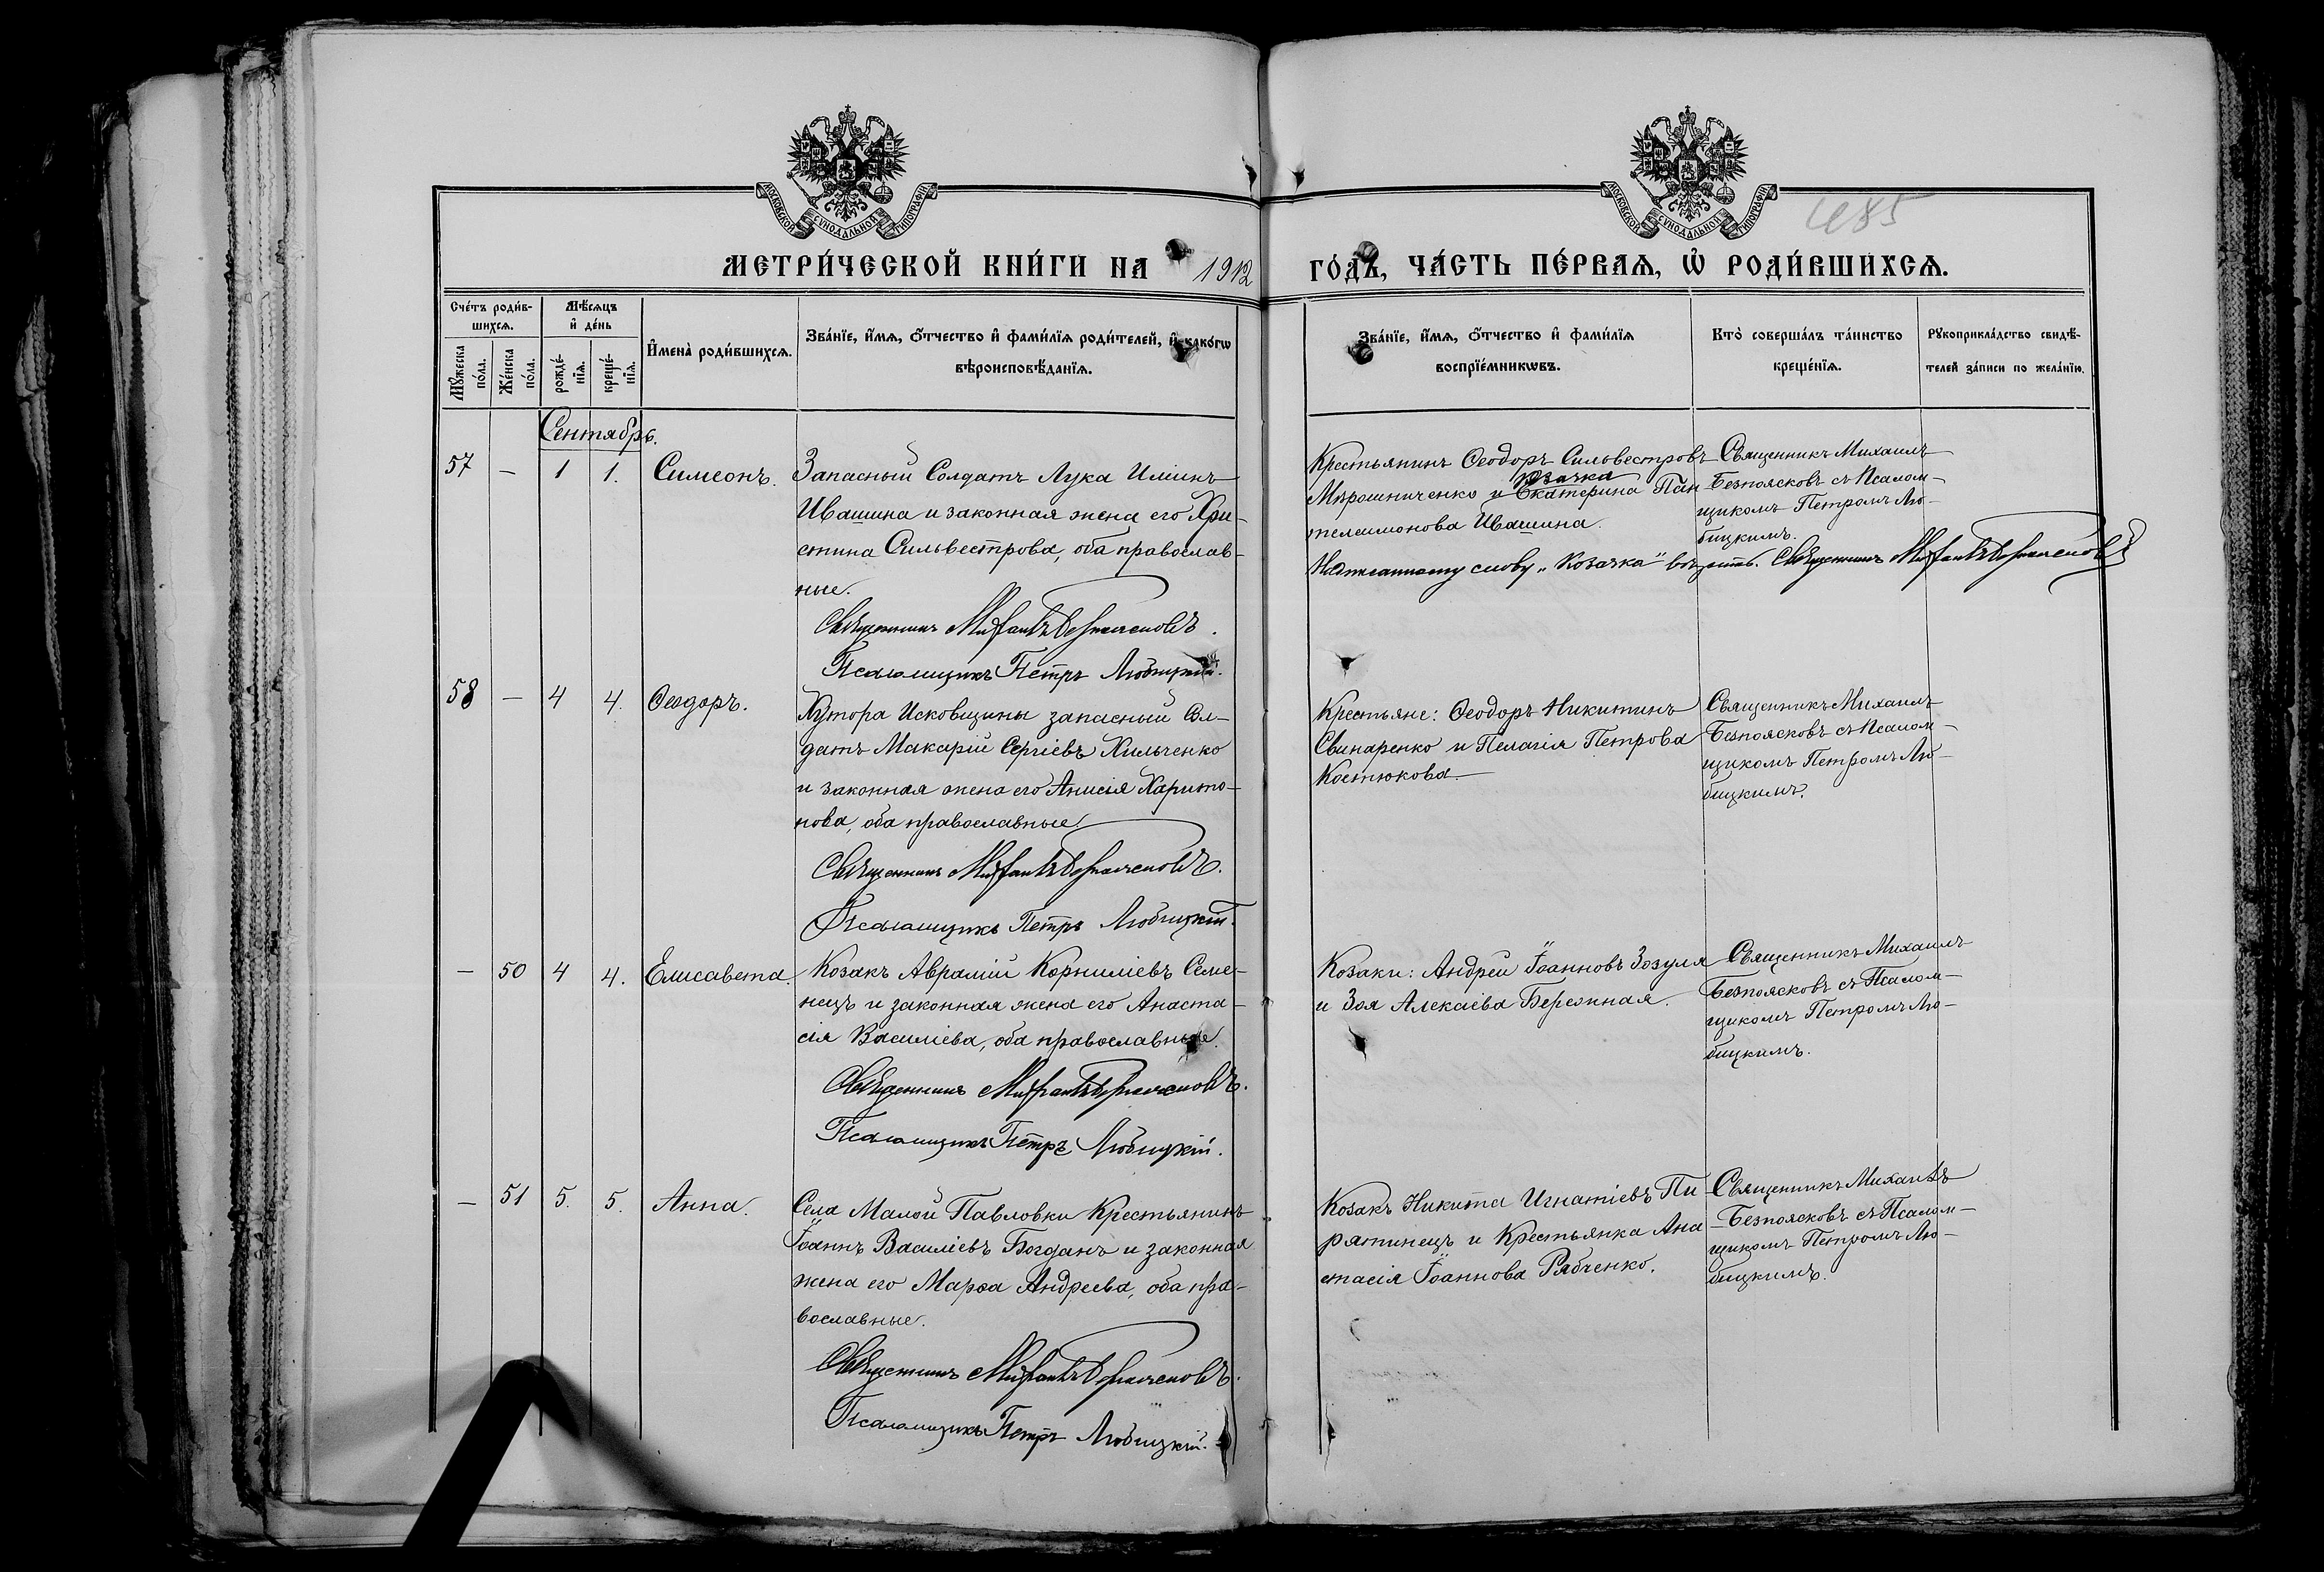 МОСКОВСКОЙ СѴНОДАЛЬНОЙ ТИПОГРАФІИ
МОСКОВСКОЙ СѴНОДАЛЬНОЙ ТИПОГРАФІИ
485
МЕТРИ́ЧЕСКОЙ КНИ́ГИ НА 1912 ГО́ДЪ, ЧА́СТЬ ПЕ́РВАѦ, Ѡ҆ РОДИ́ВШИХСѦ.
Сче́тъ роди́в-
шихсѧ.
Мꙋ́жеска по́ла.
Же́нска по́ла.
Мѣ́сѧцъ
и҆ де́нь
рожде́-
нїѧ.
креще́-
нїѧ.
И҆мена̀ роди́вшихсѧ.
Зва́нїе, и҆́мѧ, ѻ҆́тчество и҆ фами́лїѧ роди́телей, и҆ како́гѡ
вѣроисповѣ́данїѧ.
Зва́нїе, и҆́мѧ, ѻ҆́тчество и҆ фами́лїѧ
воспрїе́мникѡвъ.
Кто̀ соверша́лъ та́инство
креще́нїѧ.
Рꙋкоприкла́дство свидѣ́-
телей за́писи по жела́нїю.
Сентябрь.
57 — 1 1. Симеонъ.
Запасный Солдатъ Лука Иліинъ
Ивашина и законная жена его Хри-
стина Сильвестрова, оба православ-
ные.
Священникъ Михаилъ Безпоясковъ.
Псаломщикъ Петръ Любицкій.
Крестьянинъ Ѳеодоръ Сильвестровъ
Козачка
Мирошниченко и Екатерина Пан
телеимонова Ивашина.
Надписанному слову „Козачка" вѣрить. Священникъ Михаилъ Безпоясковъ
Священникъ Михаилъ
Безпоясковъ съ Псалом-
щикомъ Петромъ Лю-
бицкимъ.
58 — 4 4. Ѳеодоръ.
Хутора Исковщины запасный Сол-
датъ Макарій Сергіевъ Хильченко
и законная жена его Анисія Харито-
нова, оба православные.
Священникъ Михаилъ Безпоясковъ.
Псаломщикъ Петръ Любицкій.
Крестьяне: Ѳеодоръ Никитинъ
Свинаренко и Пелагія Петрова
Костюкова.
Священникъ Михаилъ
Безпоясковъ съ Псалом-
щикомъ Петромъ Лю-
бицкимъ.
— 50 4 4. Елисавета.
Козакъ Аврамій Корниліевъ Семе-
нецъ и законная жена его Анаста-
сія Василіева, оба православные.
Священникъ Михаилъ Безпоясковъ.
Псаломщикъ Петръ Любицкій.
Козаки: Андрей Іоанновъ Зозуля
и Зоя Алекаіева Бережная.
Священникъ Михаилъ
Безпоясковъ съ Псалом-
щикомъ Петромъ Лю-
бицкимъ.
— 51 5. 5. Анна.
Села Малой Павловки Крестьянинъ
Іоаннъ Василіевъ Богданъ и законная
жена его Марѳа Андреева, оба пра-
вославные.
Священникъ Михаилъ Безпоясковъ.
Псаломщикъ Петръ Любицкій.
Козакъ Никита Игнатіевъ Пи
рятинецъ и Крестьянка Ана
стасія Іоаннова Рябченко.
Священникъ Михаилъ
Безпоясковъ съ Псалом-
щикомъ Петромъ Лю-
бицкимъ.